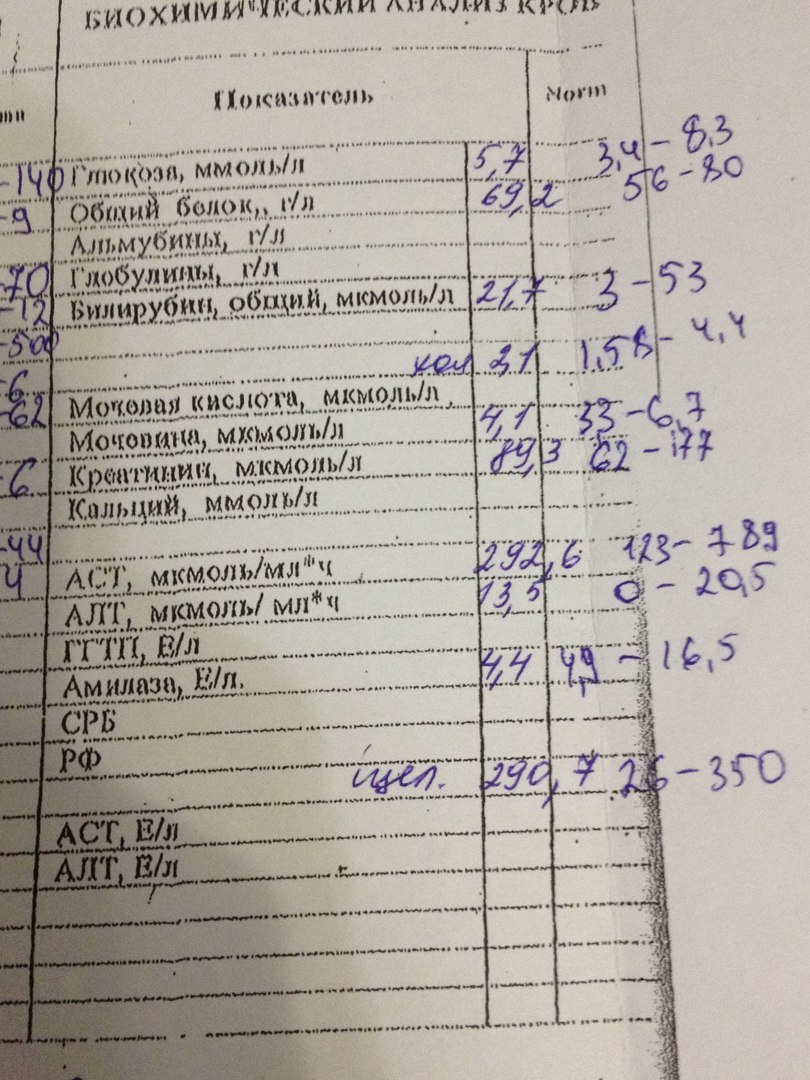 БИОХИМИЧЕСКИЙ АНАЛИЗ КРОВ
Показатель Norm
-140 Глюкоза, ммоль/л 5,7 3,4 - 8,3
-9 Общий белок,, г/л 69,2 56 - 80
Альмубины, г/л
-70 Глобулины, г/л
-12 Билирубин, общий, мкмоль/л 21,7 3 - 53
-500
хол 3,1 1,58 - 4,4
-6
-62 Мочевая кислота, мкмоль/л
Мочевина, мкмоль/л 4,1 33 - 6,7
-6 Креатинин, мкмоль/л 89,3 62 - 177
Кальций, ммоль/л
-44
4 АСТ, мкмоль/мл*ч 292,6 123 - 789
АЛТ, мкмоль/ мл*ч 13,5 0 - 20,5
ГГТП, Е/л
Амилаза, Е/л. 4,4 4,9 - 16,5
СРБ
РФ
щел. 290,7 26 - 350
АСТ, Е/л
АЛТ, Е/л